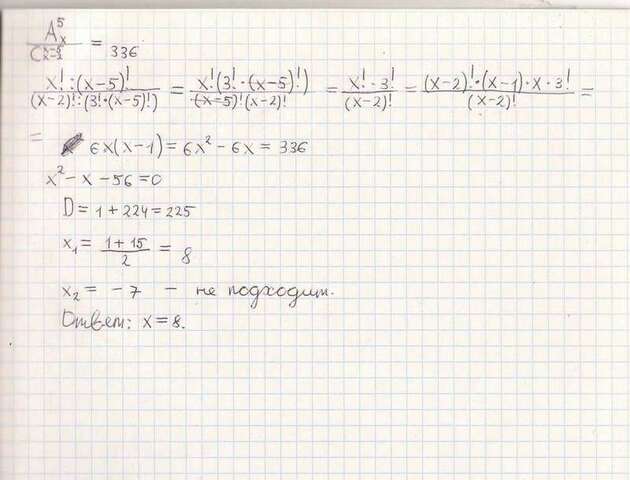 A⁵ₓ / Cˣ⁻⁵ₓ₋₂ = 336
x! : (x-5)! / (x-2)! : (3! · (x-5)!) = x! (3! · (x-5)!) / (x-5)! (x-2)! = x! · 3! / (x-2)! = (x-2)! · (x-1) · x · 3! / (x-2)! =
= 6x(x-1) = 6x² - 6x = 336
x² - x - 56 = 0
D = 1 + 224 = 225
x₁ = 1 + 15 / 2 = 8
x₂ = -7 - не подходит.
Ответ: x = 8.